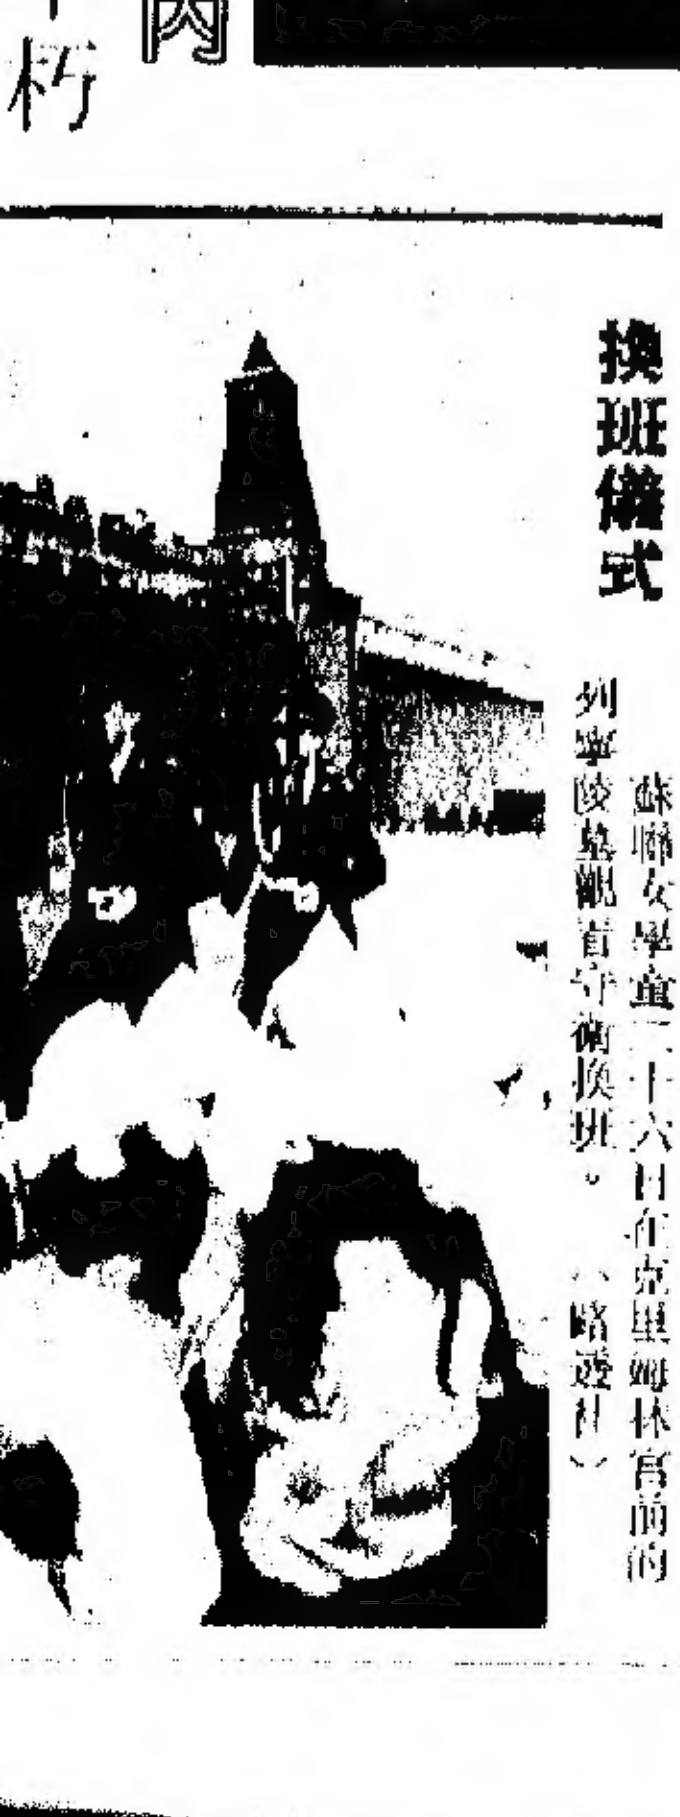 內
朽
換班儀式
蘇聯女學童二十六日在克里姆林宮前的
列寧陵墓觀看守衞換班。（路透社）